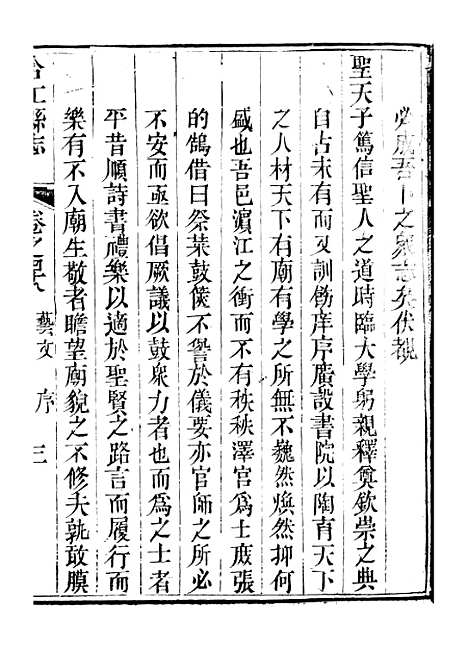 必成吾卜之眾志矣伏覩
聖天子篤信聖人之道時臨大學躬親釋奠欽崇之典
自古未有而又訓飭庠序廣設書院以陶育天下
之人材天下有廟有學之所無不巍然煥然抑何
盛也吾邑濵江之衝而不有秩秩澤宮為士庻張
的鵠借曰祭菜鼓篋不諐於儀要亦官師之所必
不安而亟欲倡厥議以鼓眾力者也而為之士者
平昔順詩書禮樂以適於聖賢之路言而履行而
樂有不入廟生敬者瞻望廟貌之不修夫孰敢膜
合江縣志
卷之
藝文
序
三